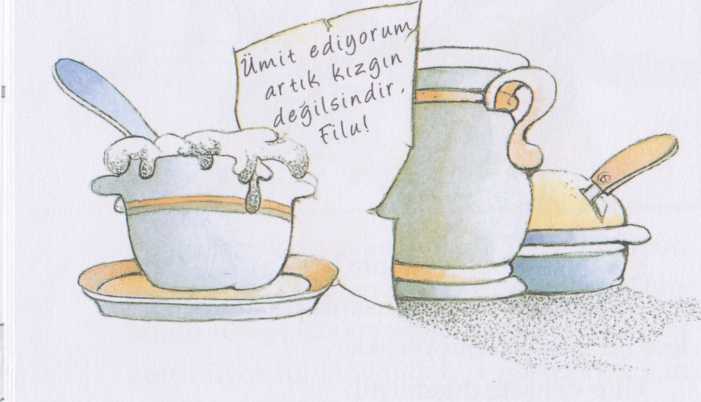 Ümit ediyorum
artık kızgın
değilsindir,
Filu!